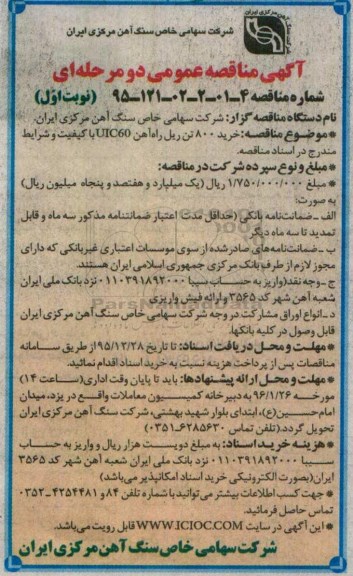 شرکت سهامی خاص سنگ آهن مرکزی ایران
آگهی مناقصه عمومی دو مرحله‌ای
شماره مناقصه ۴-۰۱-۲-۰۲-۱۲۱-۹۵ (نوبت اوّل)
نام دستگاه مناقصه گزار: شرکت سهامی خاص سنگ آهن مرکزی ایران.
* موضوع مناقصه: خرید ۸۰۰ تن ریل راه‌آهن UIC60 با کیفیت و شرایط
مندرج در اسناد مناقصه.
* مبلغ و نوع سپرده شرکت در مناقصه:
* مبلغ ۱/۷۵۰/۰۰۰/۰۰۰ ریال (یک میلیارد و هفتصد و پنجاه میلیون ریال)
به صورت:
الف ـ ضمانت‌نامه بانکی (حداقل مدت اعتبار ضمانتنامه مذکور سه ماه و قابل
تمدید تا سه ماه دیگر
ب ـ ضمانت‌نامه‌های صادر شده از سوی موسسات اعتباری غیربانکی که دارای
مجوز لازم از طرف بانک مرکزی جمهوری اسلامی ایران هستند.
ج ـ وجه نقد (واریز به حساب سیبا ۰۱۱۰۳۹۱۸۹۲۰۰۰ نزد بانک ملی ایران
شعبه آهن شهر کد ۳۵۶۵ و ارائه فیش واریزی
د ـ انواع اوراق مشارکت در وجه شرکت سهامی خاص سنگ آهن مرکزی ایران
قابل وصول در کلیه بانکها.
* مهلت و محل دریافت اسناد: تا تاریخ ۹۵/۱۲/۲۸ از طریق سامانه
مناقصات پس از پرداخت هزینه نسبت به خرید اسناد اقدام نمائید.
* مهلت و محل ارائه پیشنهادها: باید تا پایان وقت اداری (ساعت ۱۴)
مورخه ۹۶/۱/۲۶ به دبیرخانه کمیسیون معاملات واقع در یزد، میدان
امام حسین (ع)، ابتدای بلوار شهید بهشتی، شرکت سنگ آهن مرکزی ایران
تحویل گردد. (تلفن تماس ۶۲۸۵۶۳۰-۰۳۵۱)
* هزینه خرید اسناد: به مبلغ دویست هزار ریال و واریز به حساب
سیبا ۰۱۱۰۳۹۱۸۹۲۰۰۰ نزد بانک ملی ایران شعبه آهن شهر کد ۳۵۶۵
ایران (بصورت الکترونیکی خرید اسناد امکانپذیر می‌باشد)
* جهت کسب اطلاعات بیشتر می‌توانید با شماره تلفن ۸۴ و ۴۲۵۴۴۸۱-۰۳۵۲
تماس حاصل فرمائید.
* این آگهی در سایت WWW.ICIOC.COM قابل رویت می‌باشد.
شرکت سهامی خاص سنگ آهن مرکزی ایران